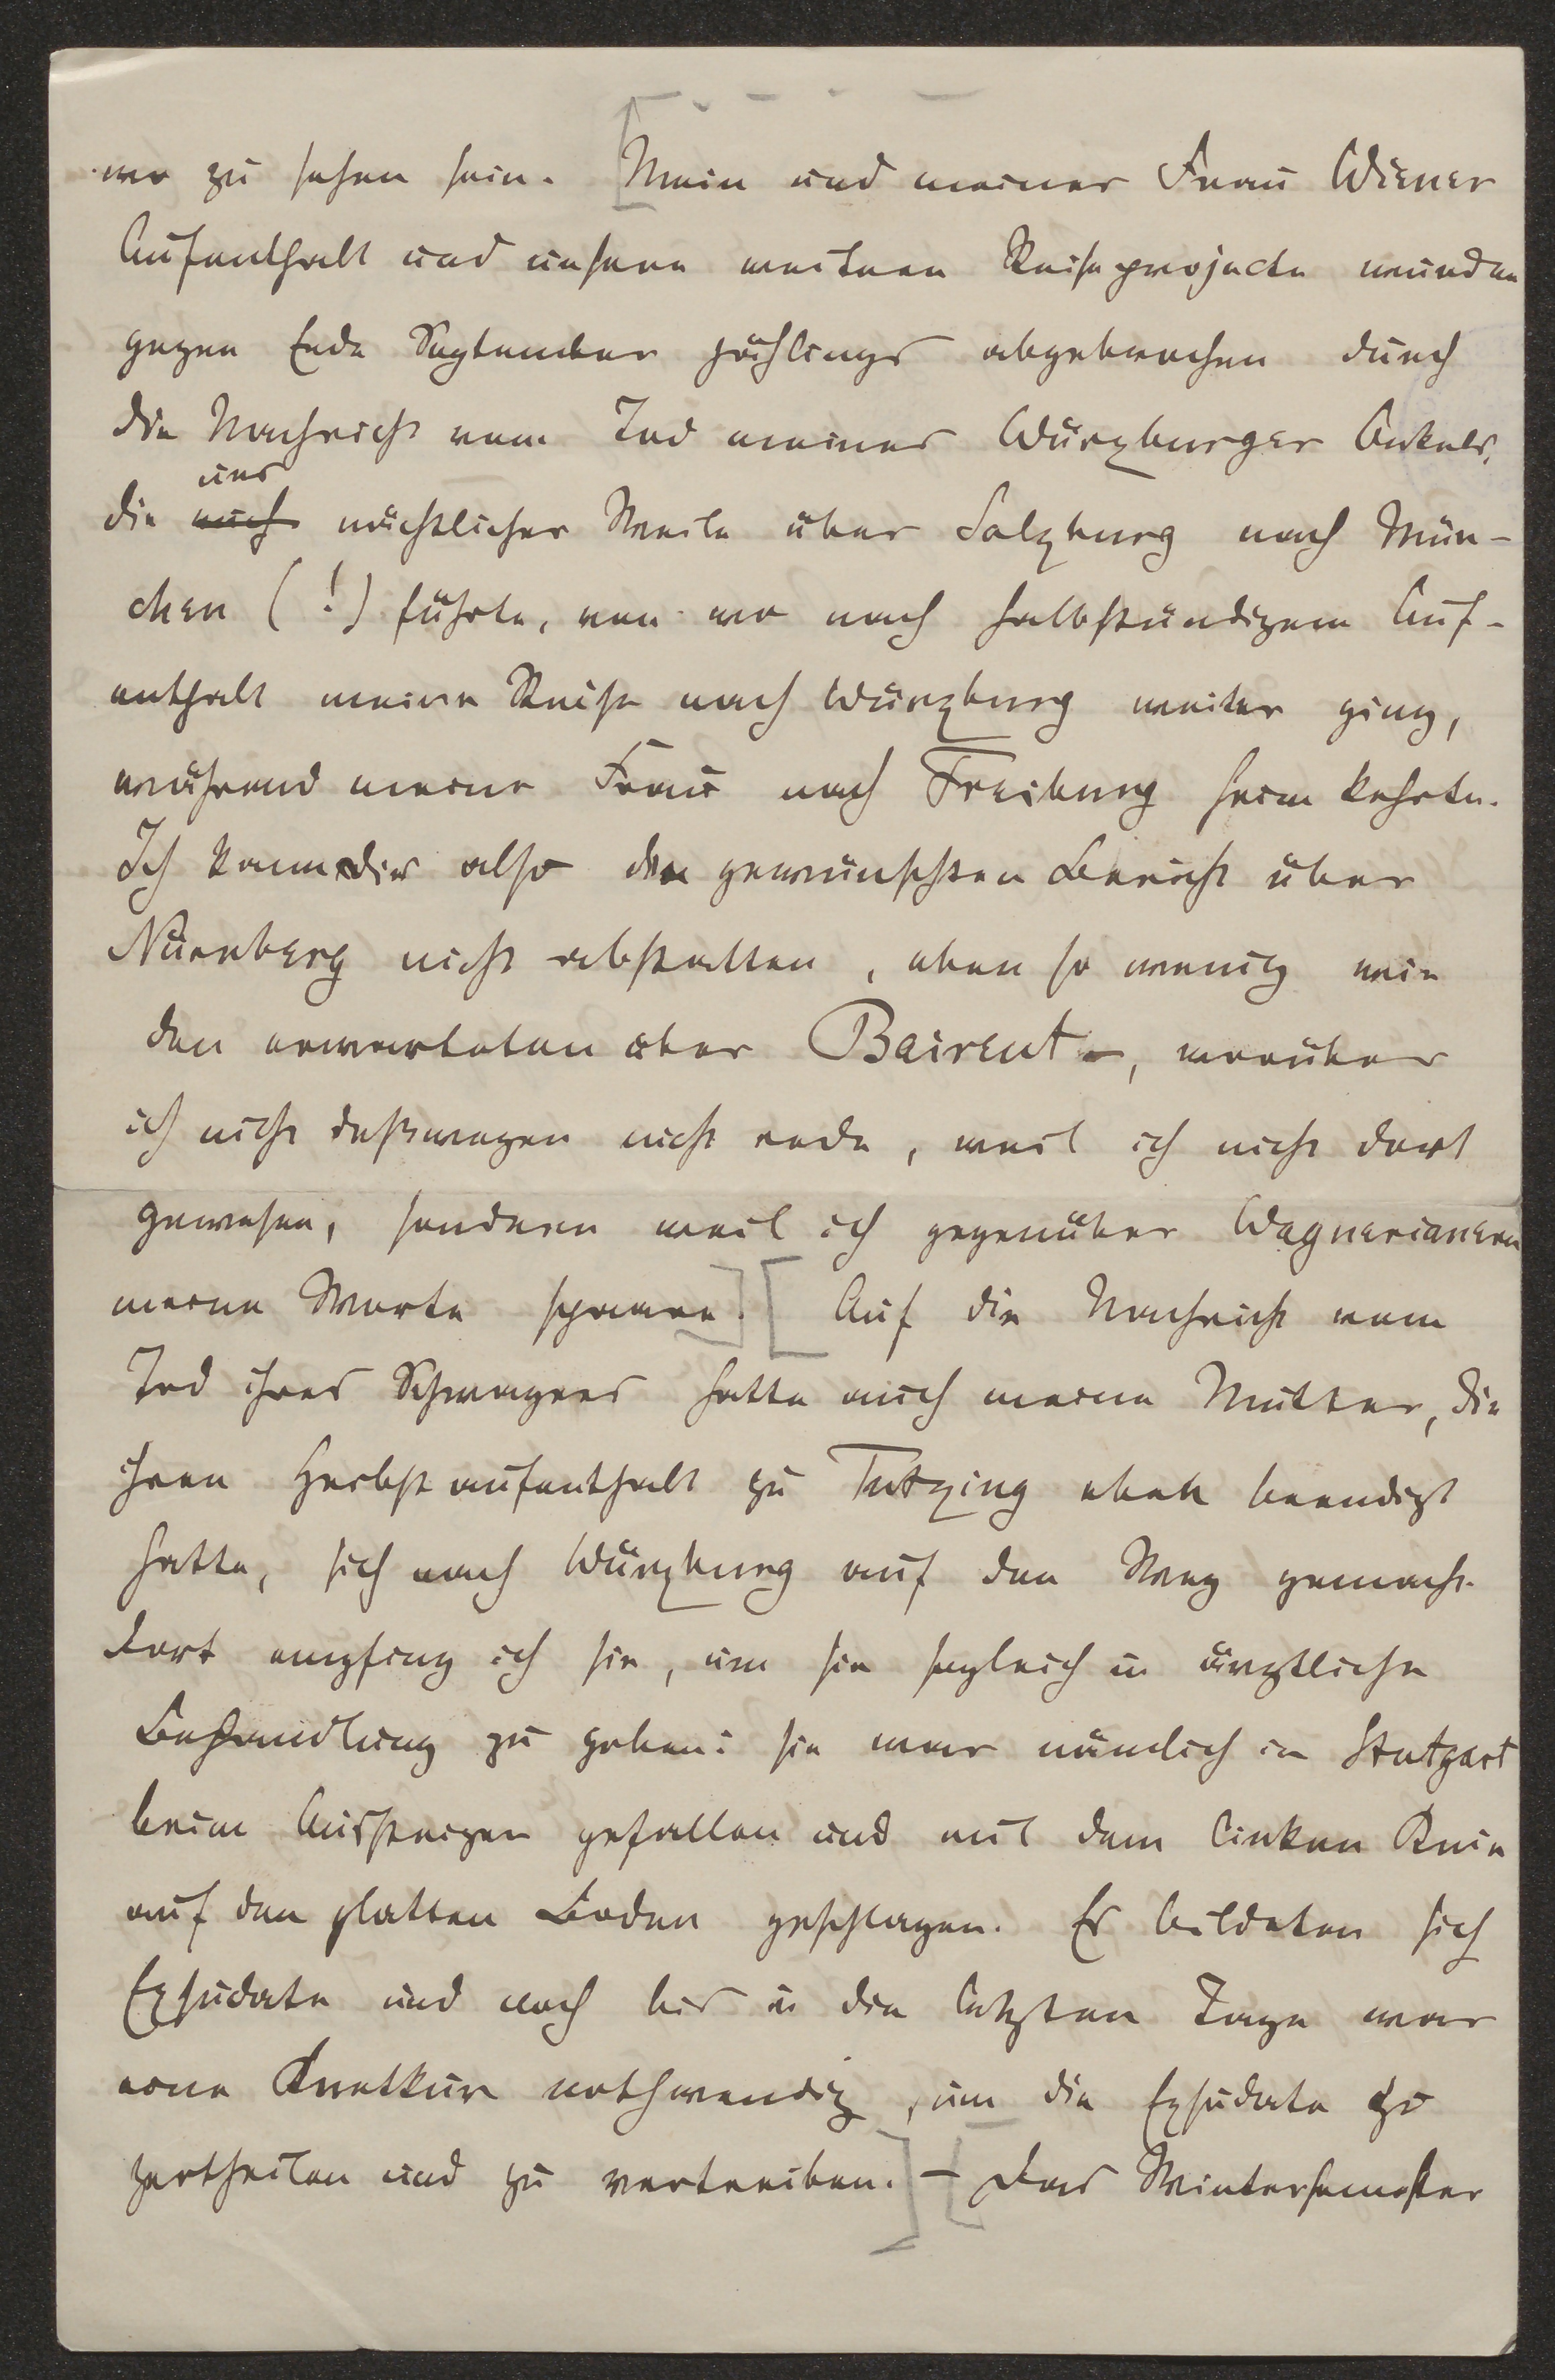 wo zu sehen sein. [Mein und meiner Frau Wiener
Aufenthalt und unsere weitern Reiseprojecte wurden
gegen Ende September jählings abgebrochen durch
die Nachricht vom Tod meines Würzburger Onkels,
uns
die mich nächtlicher Weile über Salzburg nach Mün-
chen (!) führte, von wo nach halbstündigem Auf-
enthalt meine Reise nach Würzburg weiter ging,
während meine Frau nach Freiburg heim kehrte.
Ich kann dir also den gewünschten Bericht über
Nürnberg nicht abstatten, eben so wenig wie
den erwarteten über Baireut –, worüber
ich nicht deßwegen nicht rede, weil ich nicht dort
gewesen, sondern weil ich gegenüber Wagnerianern
meine Worte spare.] [Auf die Nachricht vom
Tod ihres Schwagers hatte auch meine Mutter, die
ihren Herbstaufenthalt zu Tutzing eben beendigt
hatte, sich nach Würzburg auf den Weg gemacht.
Dort empfing ich sie, um sie sogleich in ärztliche
Behandlung zu geben: sie war nämlich in Stutgart
beim Aussteigen gefallen und mit dem linken Knie
auf den platten Boden geschlagen. Es bildeten sich
Exsudate und noch bis in die letzten Tage war
eine Knetkur nothwendig, um die Exsudate zu
zertheilen und zu vertreiben.] – [Das Wintersemester